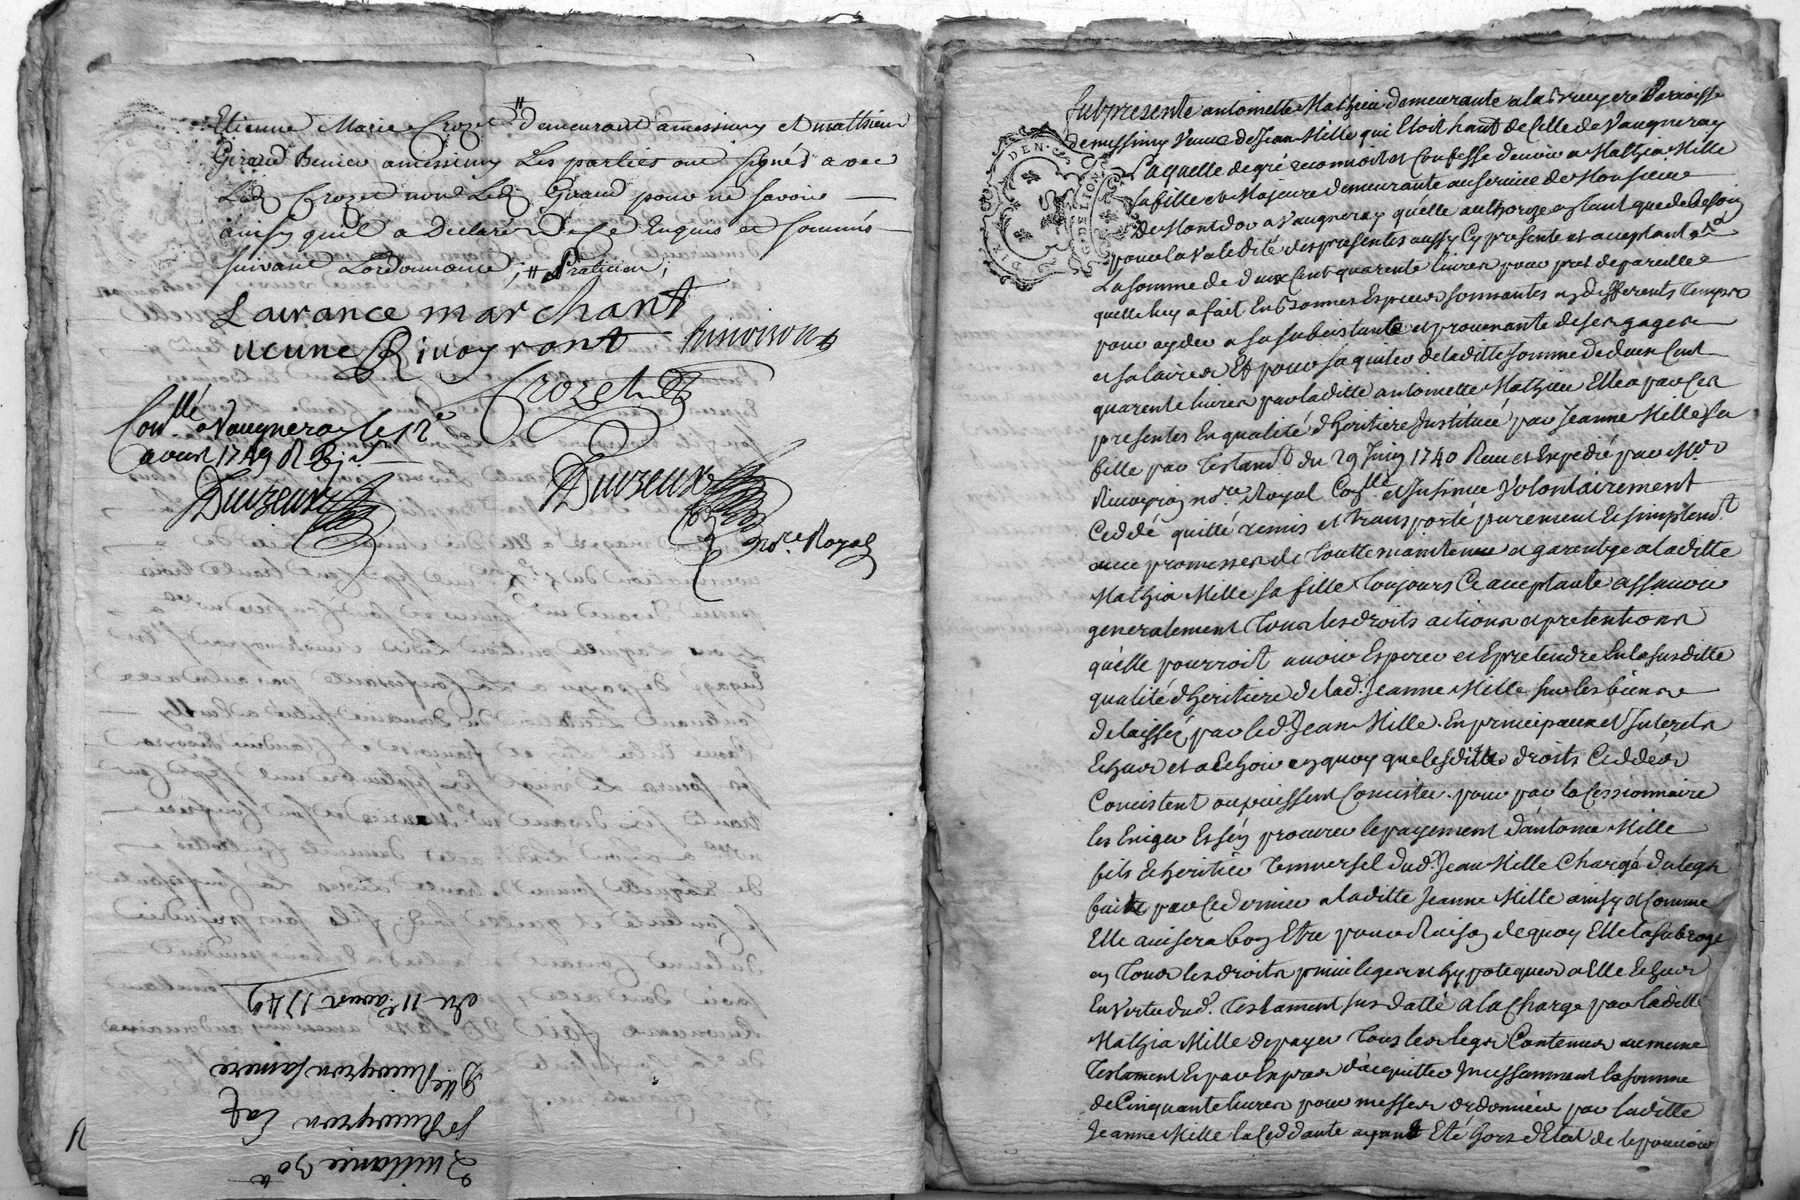 Etienne Marie Crozet " demeurant a messimy et matthieu
Giraud Benier a messimy Les parties ont signés avec
Led. Crozet non Led. Giraud pour ne savoir
ainsy quil a declaré De ce Enquis et sommés
suivant Lordonnance ; " Praticien ;
Lairance marchant
veuve Rivoyront
Crozet
Con.llé a Vaugneray le 12e
avril 1749 R
Duvzeux
Duvzeux
no.re Royal
du 11e avril 1749
D.lle Rivoyron sa mere
sr Rivoyron
Quittance 30
fut presente antoinette Mathieu demeurante a la Bruyere Parroisse
de messimy Veuve de Jean Mille qui Etoit hant de Celle de Vaugneray
Laquelle de gré reconnoit et Confesse devoir a Mathia Mille
sa fille et Majeure demeurante au service de Monsieur
De Montdor a Vaugneray qu'elle authorize a stant que de Besoin
pour la Validité des presentes aussy Cy presente et acceptant
La somme de deux Cent quarente livres pour pret de pareille
quelle luy a fait En Bonnes Especes sonnantes en differents Temps
pour ayder a sa subsistante et provenante de ses gages
et salaires Et pour s'aquiter de laditte somme de deux Cent
quarente livres par laditte antoinette Mathieu Elle a par Ces
presentes En qualité d'heritiere Instituée par Jeanne Mille sa
fille par Testam.t du 29 Juin 1740 Reçu et Expedié par M.e
Rivoyron no.re Royal Con.llé et Insinué Volontairement
Ceddé quitté remis et transporté purement et simplem.t
avec promesses de Toutte maintenue et garentye a laditte
Mathia Mille sa fille Toujours Cy acceptante assavoir
generalement Tous les droits actions et pretentions
qu'elle pourroit avoir Esperer et Epretendre En la susditte
qualité d'heritiere de lad. Jeanne Mille sur les biens
delaissés par led. Jean Mille En principaux et Interets
Echus et a Echoir en quoy que lesdittes droits Ceddés
Concistent ou puissent Concister pour par la Cessionnaire
les Exiger Et s'en procurer le payement d'antoine Mille
fils Et heritier Universel dud. Jean Mille Chargé du legs
faitte par Ce dernier a laditte Jeanne Mille ainsy et Comme
Elle avisera bon Etre pour Raison de quoy Elle la subroge
en Tous les droits privileges et hypoteques a Elle Echus
En Vertu dud. Testament sus datté a la Charge par laditte
Mathia Mille de payer Tous les legs Contenus au meme
Testament Et par Exprès d'acquitter Incessamment la somme
de Cinquante livres pour messes ordonnées par laditte
Jeanne Mille la Ceddante ayant Eté hors d'Etat de le pouvoir